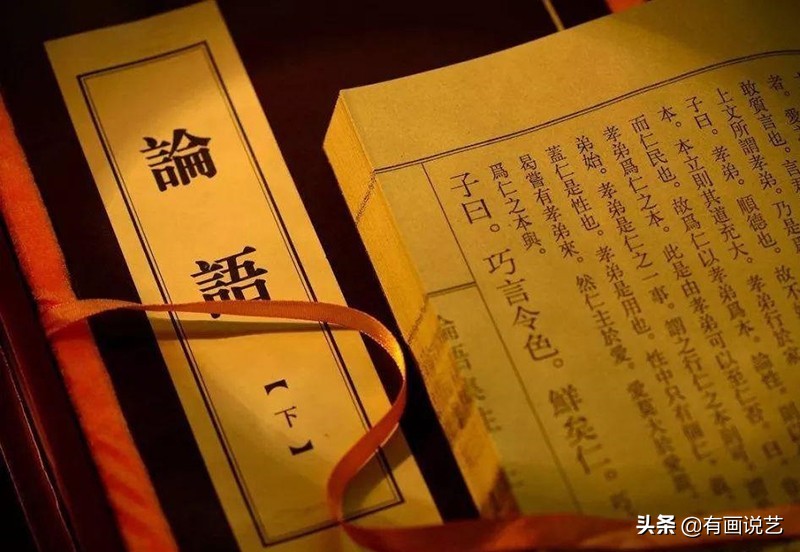 論語
【下】
者。
敢質言也。言君
上文所謂孝弟。乃是
子曰。孝弟。順德也。故不
本。本立則其道充大。孝弟行於家
而仁民也。故爲仁以孝弟爲本。論性。則以
孝弟爲仁之本。此是由孝弟可以至仁否。曰。
弟始。孝弟是仁之一事。謂之行仁之本則可。謂
蓋仁是性也。孝弟是用也。性中只有箇仁。義
曷嘗有孝弟來。然仁主於愛。愛莫大於愛親。
爲仁之本與。
子曰。巧言令色。鮮矣仁。巧
論語集註
头条 @有画说艺